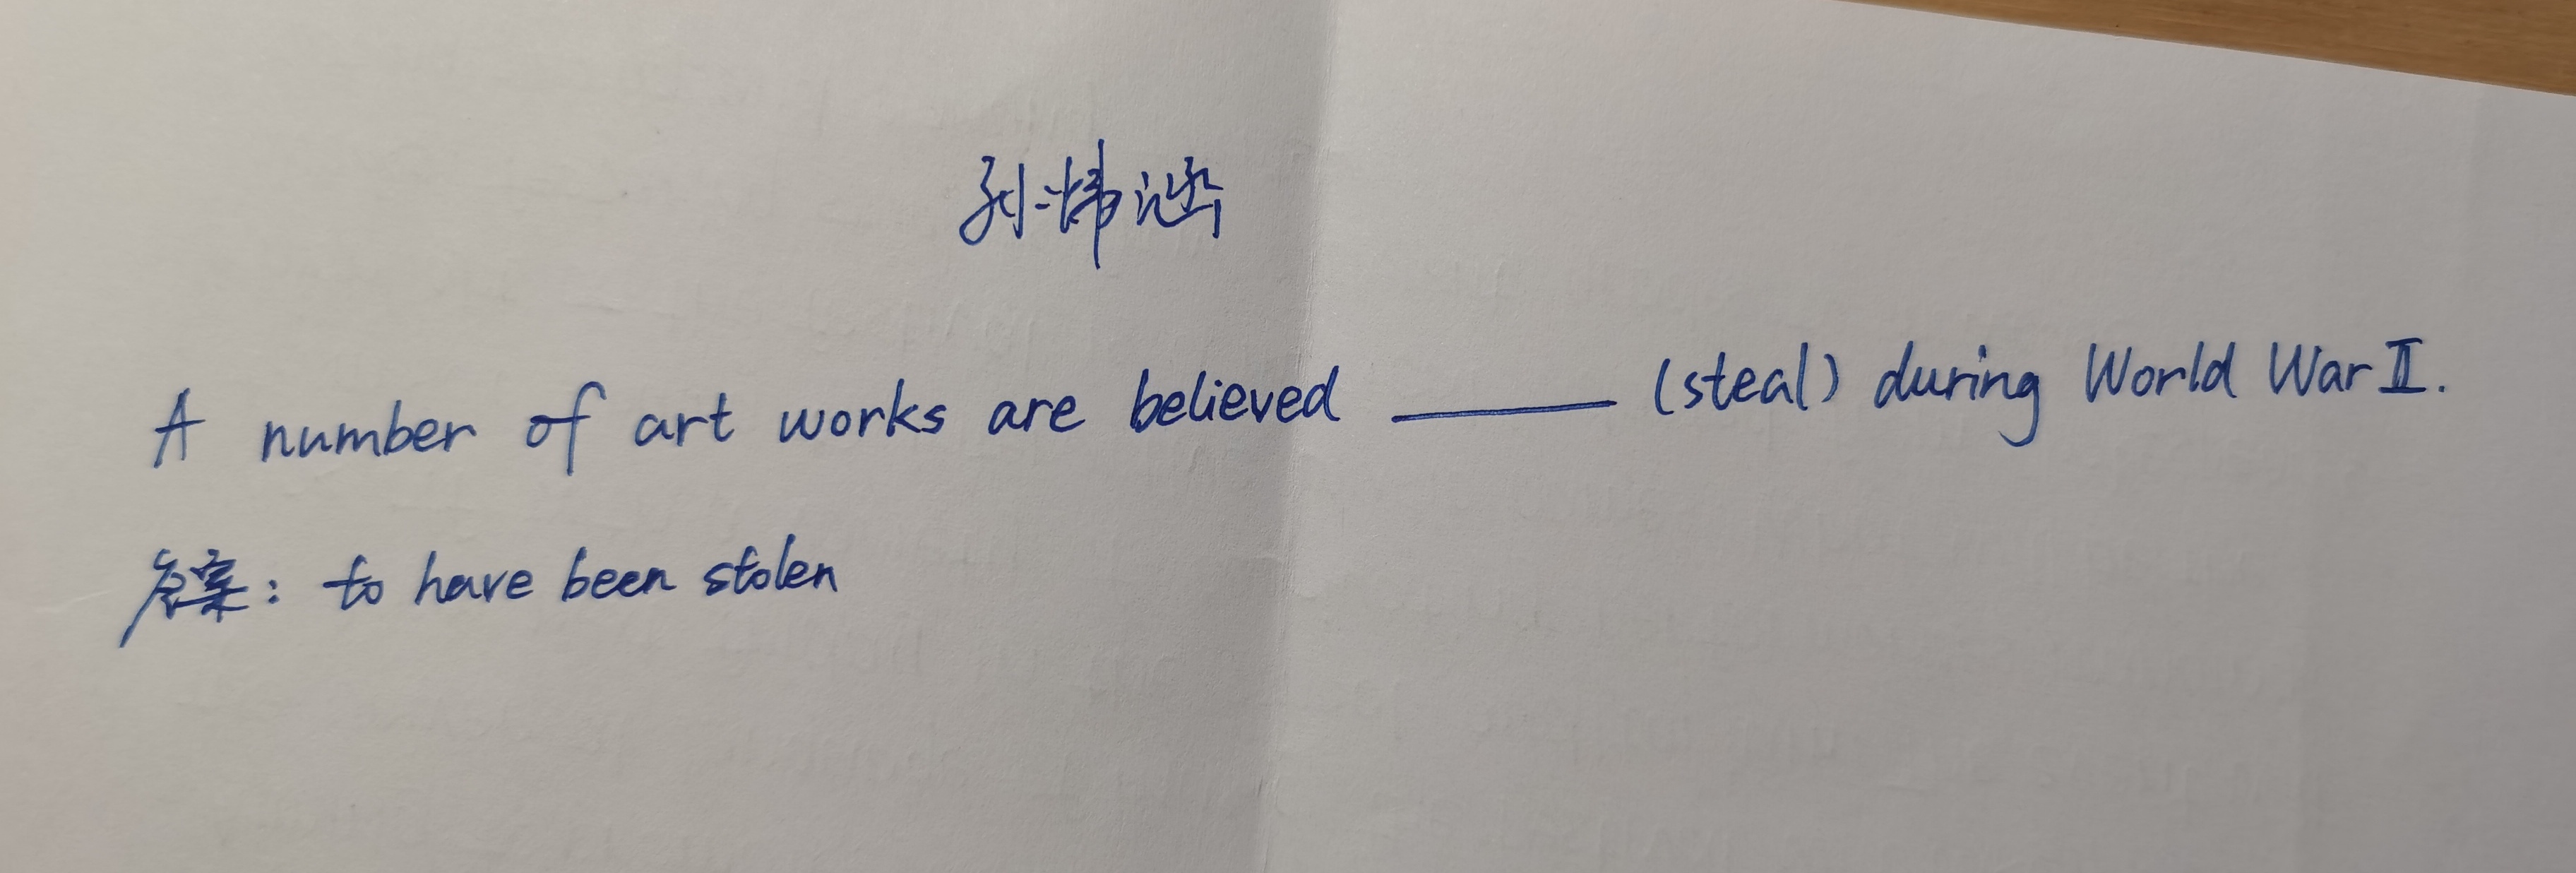 孙炜涵
A number of art works are believed ______ (steal) during World War II.
答案: to have been stolen